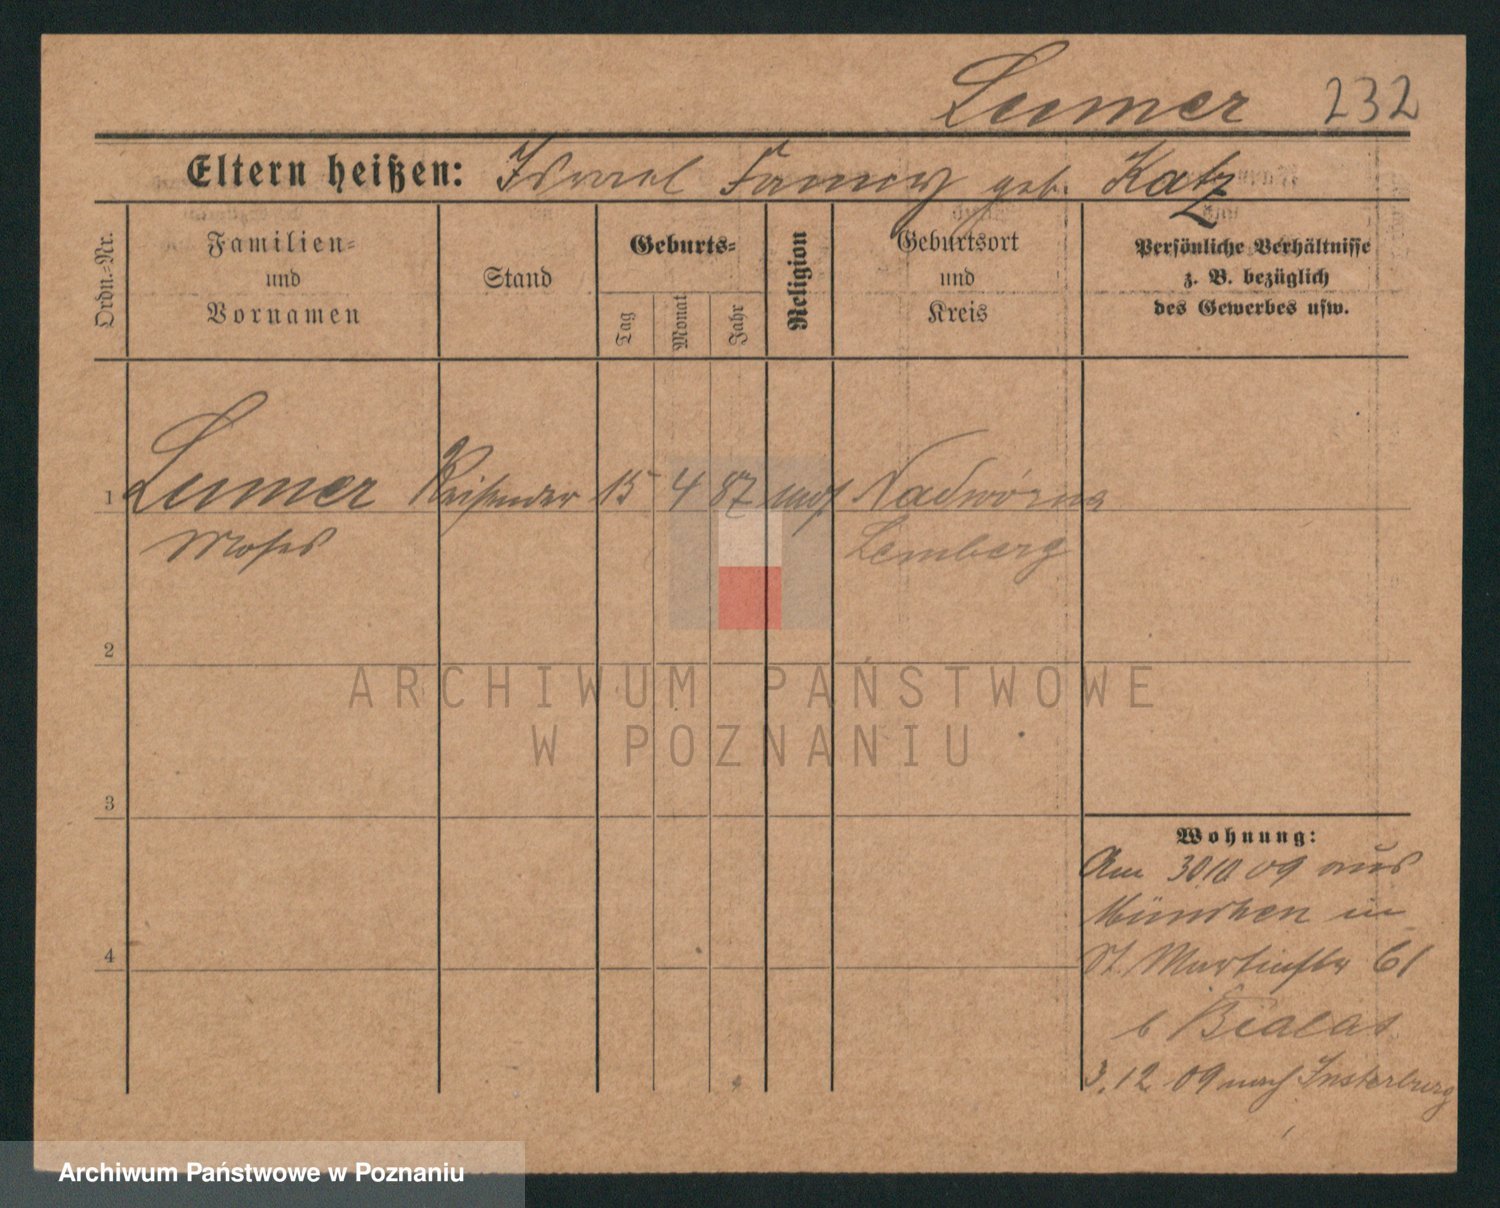 Lumer 232
Eltern heißen: Israel Fanny geb. Katz
Ordn.=Nr.
Familien=
und
Vornamen
Stand
Geburts=
Tag
Monat
Jahr
Religion
Geburtsort
und
Kreis
Persönliche Verhältnisse
z. B. bezüglich
des Gewerbes usw.
1 Lumer Reisender 15 4 87 mos. Nadwórna
Moses Lemberg
2
3
4
Wohnung:
Am 30 10 09 aus
München in
St. Martinstr 61
b Bialas
3.12 09 nach Insterburg
ARCHIWUM PAŃSTWOWE
W POZNANIU
Archiwum Państwowe w Poznaniu